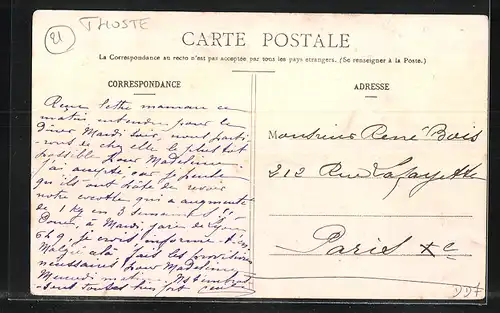 21
THOSTE
CARTE POSTALE
La Correspondance au recto n'est pas acceptée par tous les pays étrangers. (Se renseigner à la Poste.)
CORRESPONDANCE
ADRESSE
Reçu lettre maman ce
matin entendu pour le
dîner Mardi soir, nous
chez elle le plus tôt
possible pour Madeleine
j'ai accepté car je pense
qu'ils ont hâte de revoir
notre cocotte qui a augmenté
de 1 kg en 3 semaines
à Mardi, gare de Lyon
6h9, je crois, informe-t'en,
Malgré cela fais les provisions
nécessaires pour Madeleine
sent toutes très fort
Monsieur René Bois
212 Rue Lafayette
Paris Xe
DD7